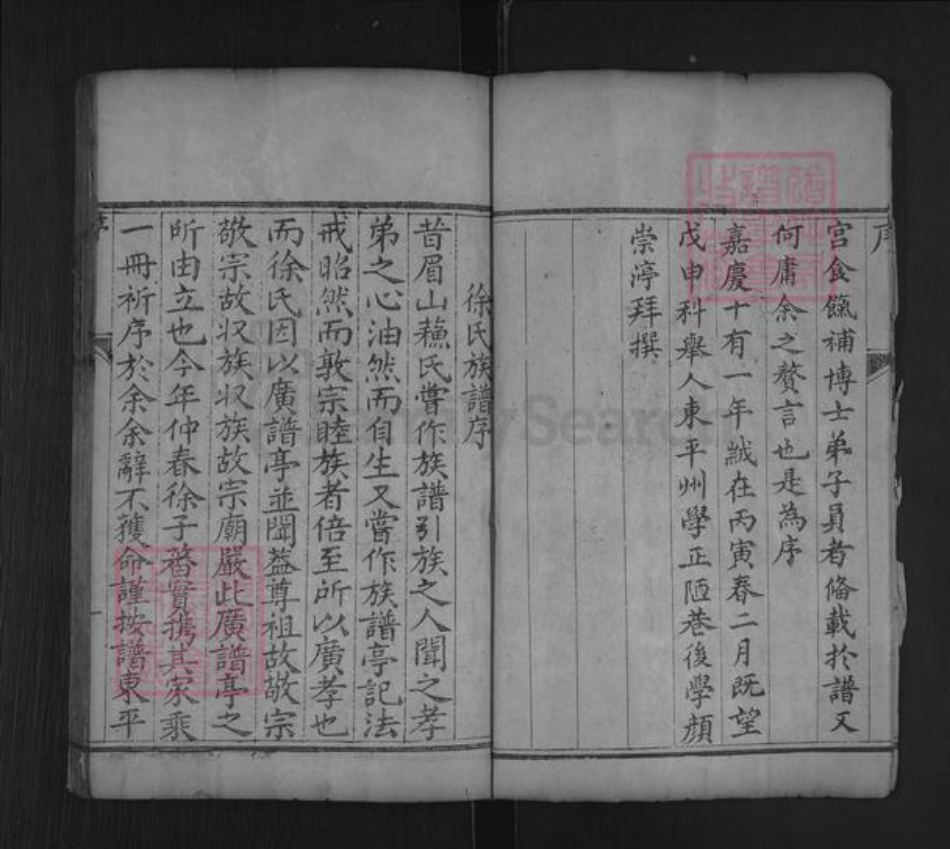 宫食餼補博士弟子員者俻載扵譜又
何庸余之贅言也是為序
嘉慶十有一年嵗在丙寅春二月既望
戊申科舉人東平州學正陋巷後學顔
崇渟拜撰
徐氏族譜序
昔眉山蘓氏嘗作族譜引族之人聞之孝
弟之心油然而自生又嘗作族譜亭記法
戒昭然而敦宗睦族者倍至所以廣孝也
而徐氏因以廣譜亭並聞葢尊祖故敬宗
敬宗故収族収族故宗廟嚴此廣譜亭之
所由立也今年仲春徐子蕃實攜其家乘
一冊祈序於余余辭不獲命謹按譜東平
FamilySearch